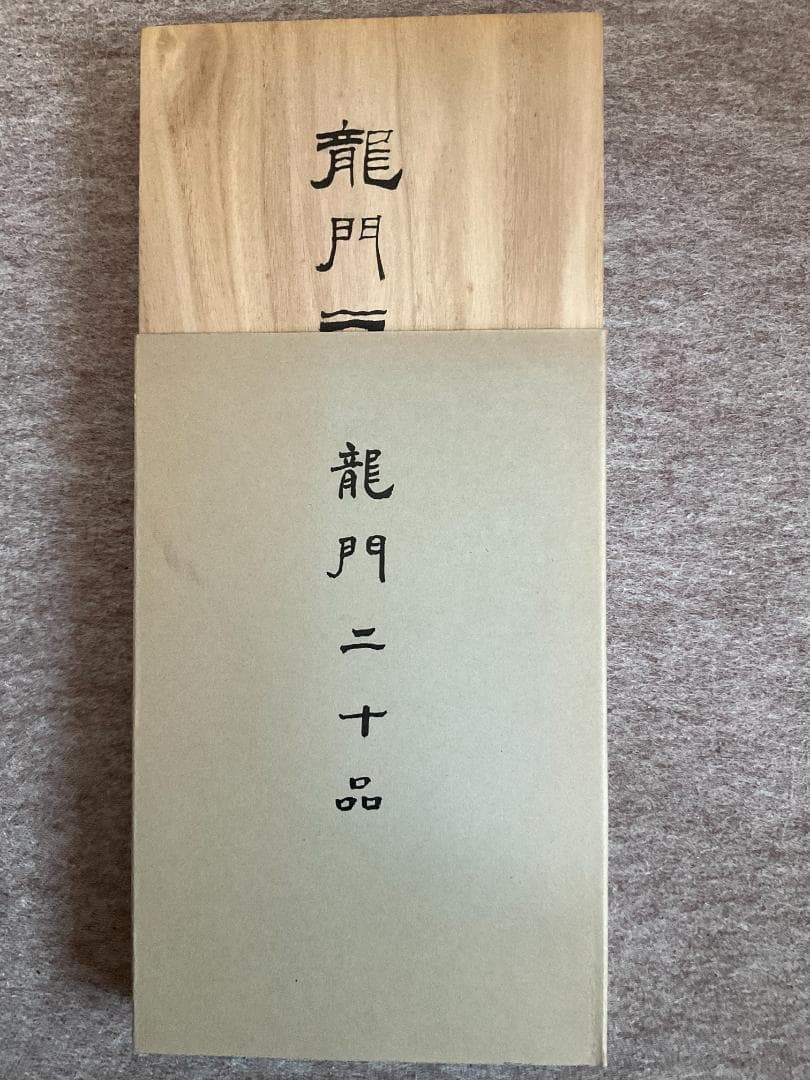 龍門二
龍門二十品